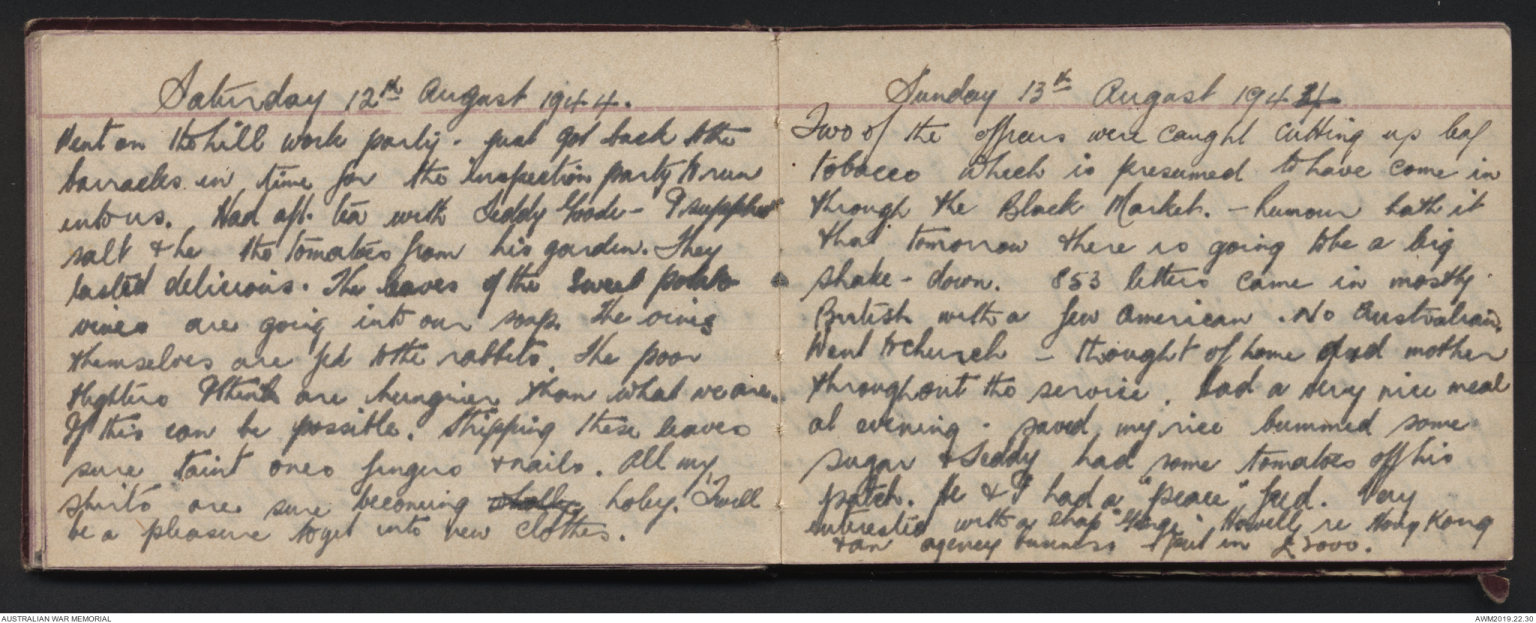 Saturday 12th August 1944.
Went on the hill work party. Just got back to the
barracks in time for the Inspection party to run
into us. Had aft. tea with Teddy Goode - I supplied
salt & he the tomatoes from his garden. They
tasted delicious. The leaves of the sweet potato
vines are going into our soup. The vines
themselves are fed to the rabbits. The poor
blighters I think are hungrier than what we are.
If this can be possible. Stripping these leaves
sure taint ones fingers & nails. All my
shirts are sure becoming wholly holey. Twill
be a pleasure to get into new clothes.
Sunday 13th August 1944
Two of the officers were caught cutting up leaf
tobacco which is presumed to have come in
through the Black Market. - humour hath it
that tomorrow there is going to be a big
shake-down. 853 letters came in mostly
British with a few American. No Australian.
Went to church - thought of home and mother
throughout the service. Had a very nice meal
at evening. saved my rice bummed some
sugar & Teddy had some tomatoes off his
patch. He & I had a "peace" feed. Very
interested with a chap Howell, re Hong Kong
& an agency business - I put in £2000.
AUSTRALIAN WAR MEMORIAL
AWM2019.22.30